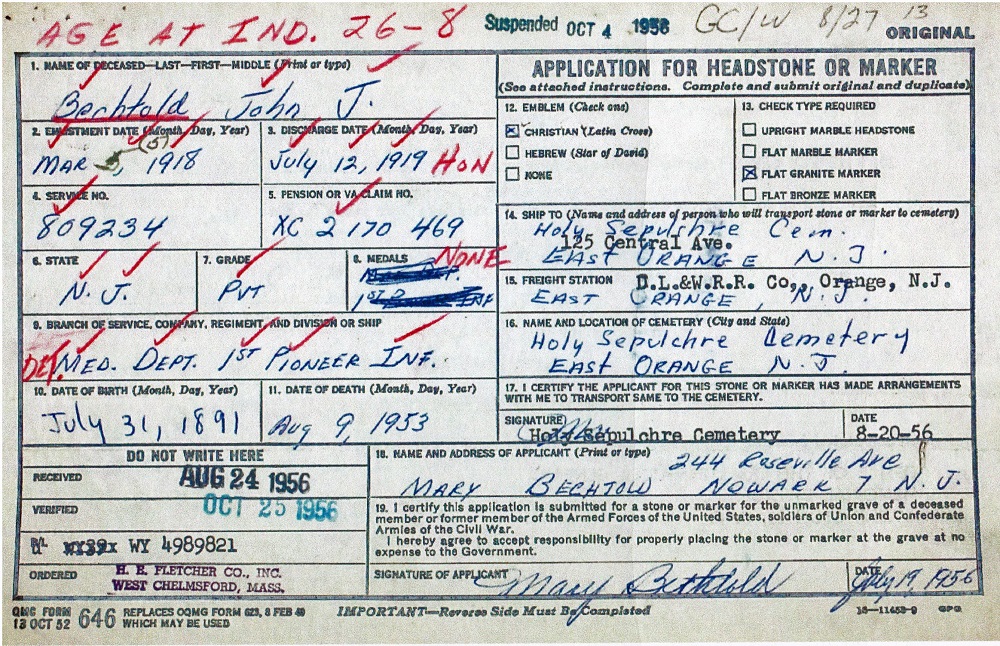 AGE AT IND. 26-8 Suspended OCT 4 1956 GC/W 8/27 13
ORIGINAL
1. NAME OF DECEASED—LAST—FIRST—MIDDLE (Print or type)
Bechtold John J.
2. ENLISTMENT DATE (Month, Day, Year)
MAR (5), 1918
3. DISCHARGE DATE (Month, Day, Year)
July 12, 1919 HON
4. SERVICE NO.
809234
5. PENSION OR VA CLAIM NO.
XC 2 170 469
6. STATE
N. J.
7. GRADE
Pvt
8. MEDALS
NONE
9. BRANCH OF SERVICE, COMPANY, REGIMENT, AND DIVISION OR SHIP
DET. MED. DEPT. 1ST PIONEER INF.
10. DATE OF BIRTH (Month, Day, Year)
July 31, 1891
11. DATE OF DEATH (Month, Day, Year)
Aug 9, 1953
APPLICATION FOR HEADSTONE OR MARKER
(See attached instructions. Complete and submit original and duplicate)
12. EMBLEM (Check one)
CHRISTIAN (Latin Cross)
HEBREW (Star of David)
NONE
13. CHECK TYPE REQUIRED
UPRIGHT MARBLE HEADSTONE
FLAT MARBLE MARKER
FLAT GRANITE MARKER
FLAT BRONZE MARKER
14. SHIP TO (Name and address of person who will transport stone or marker to cemetery)
Holy Sepulchre Cem.
125 Central Ave.
EAST ORANGE N. J.
15. FREIGHT STATION D.L.&W.R.R. Co., Orange, N.J.
EAST ORANGE, N. J.
16. NAME AND LOCATION OF CEMETERY (City and State)
Holy Sepulchre Cemetery
EAST ORANGE N. J.
17. I CERTIFY THE APPLICANT FOR THIS STONE OR MARKER HAS MADE ARRANGEMENTS
WITH ME TO TRANSPORT SAME TO THE CEMETERY.
SIGNATURE
Holy Sepulchre Cemetery
DATE
8-20-56
DO NOT WRITE HERE
RECEIVED AUG 24 1956
VERIFIED OCT 25 1956
WY 4989821
ORDERED H. E. FLETCHER CO., INC.
WEST CHELMSFORD, MASS.
18. NAME AND ADDRESS OF APPLICANT (Print or type)
244 Roseville Ave
MARY BECHTOLD NEWARK 7 N. J.
19. I certify this application is submitted for a stone or marker for the unmarked grave of a deceased
member or former member of the Armed Forces of the United States, soldiers of Union and Confederate
Armies of the Civil War.
I hereby agree to accept responsibility for properly placing the stone or marker at the grave at no
expense to the Government.
SIGNATURE OF APPLICANT Mary Bechtold
DATE July 19, 1956
QMC FORM
13 OCT 52 646 REPLACES OQMG FORM 623, 8 FEB 49
WHICH MAY BE USED
IMPORTANT—Reverse Side Must Be Completed
16—11453-9 GPO